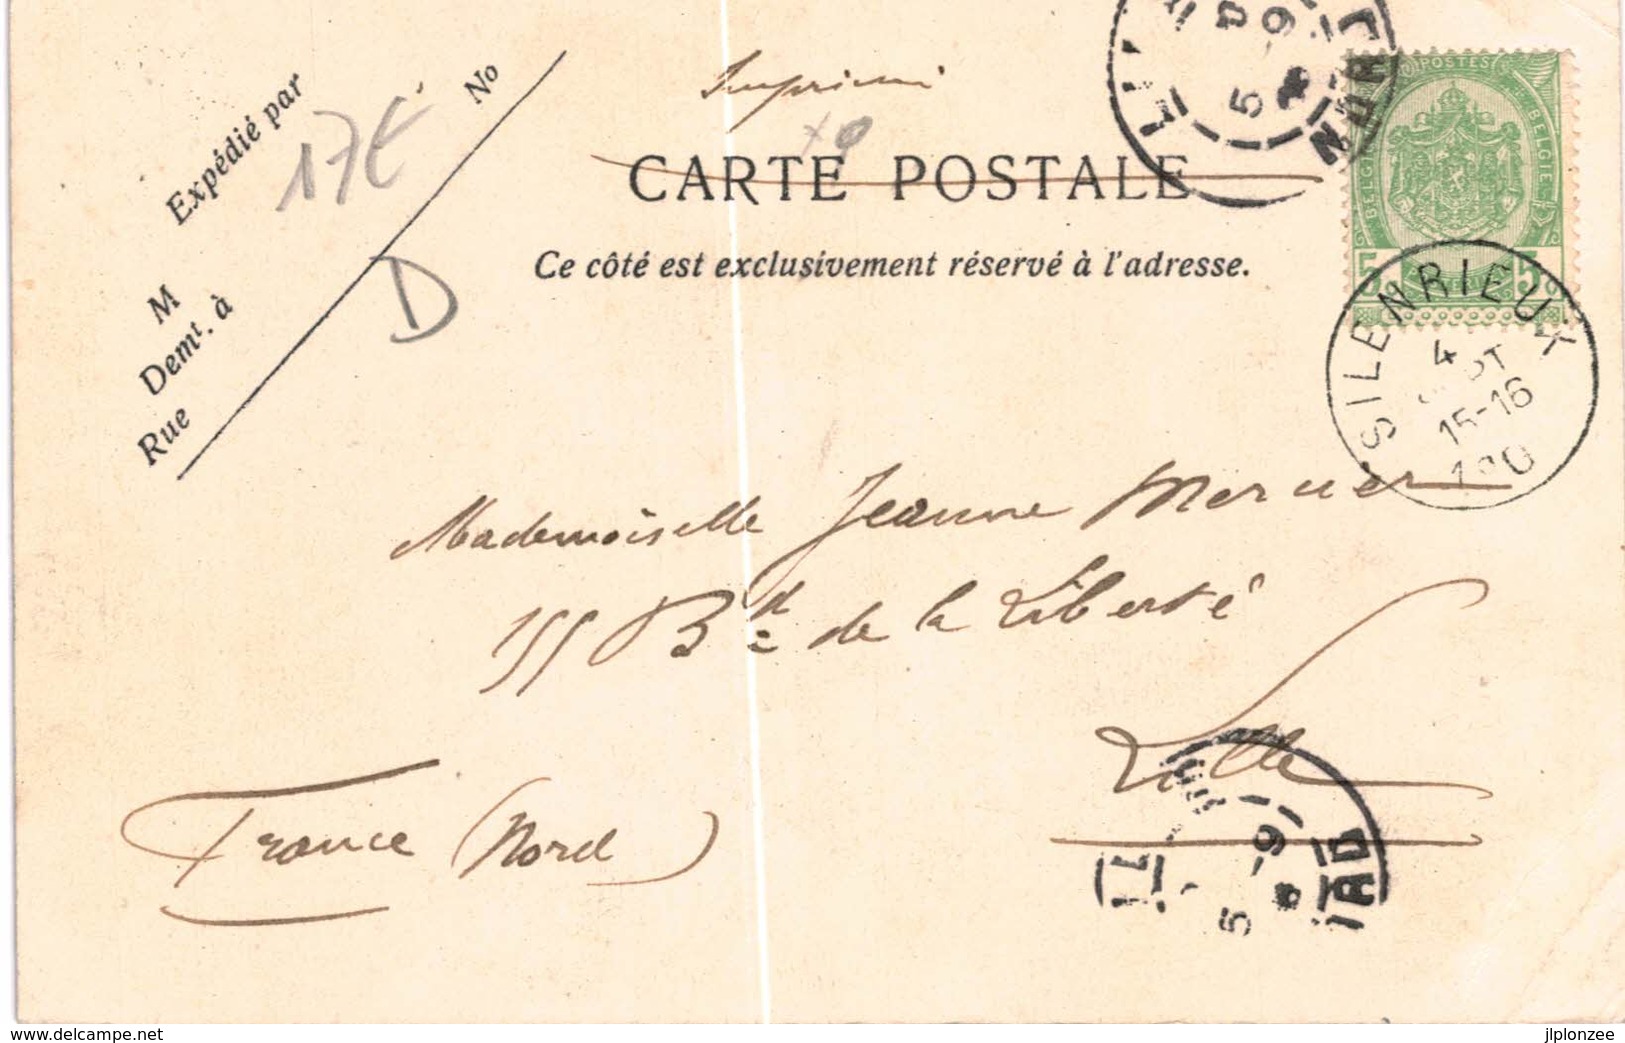 Imprimé
CARTE POSTALE
Ce côté est exclusivement réservé à l'adresse.
Expédié par
17€
No
M
Demt. à
Rue
D
NORD
5 -9
POSTES
BELGIQUE BELGIE
5 5
SILENRIEUX
4
15-16
Mademoiselle Jeanne Mercier
155 Bd de la Liberté
Lille
France (Nord)
5 -9
www.delcampe.net
jlplonzee